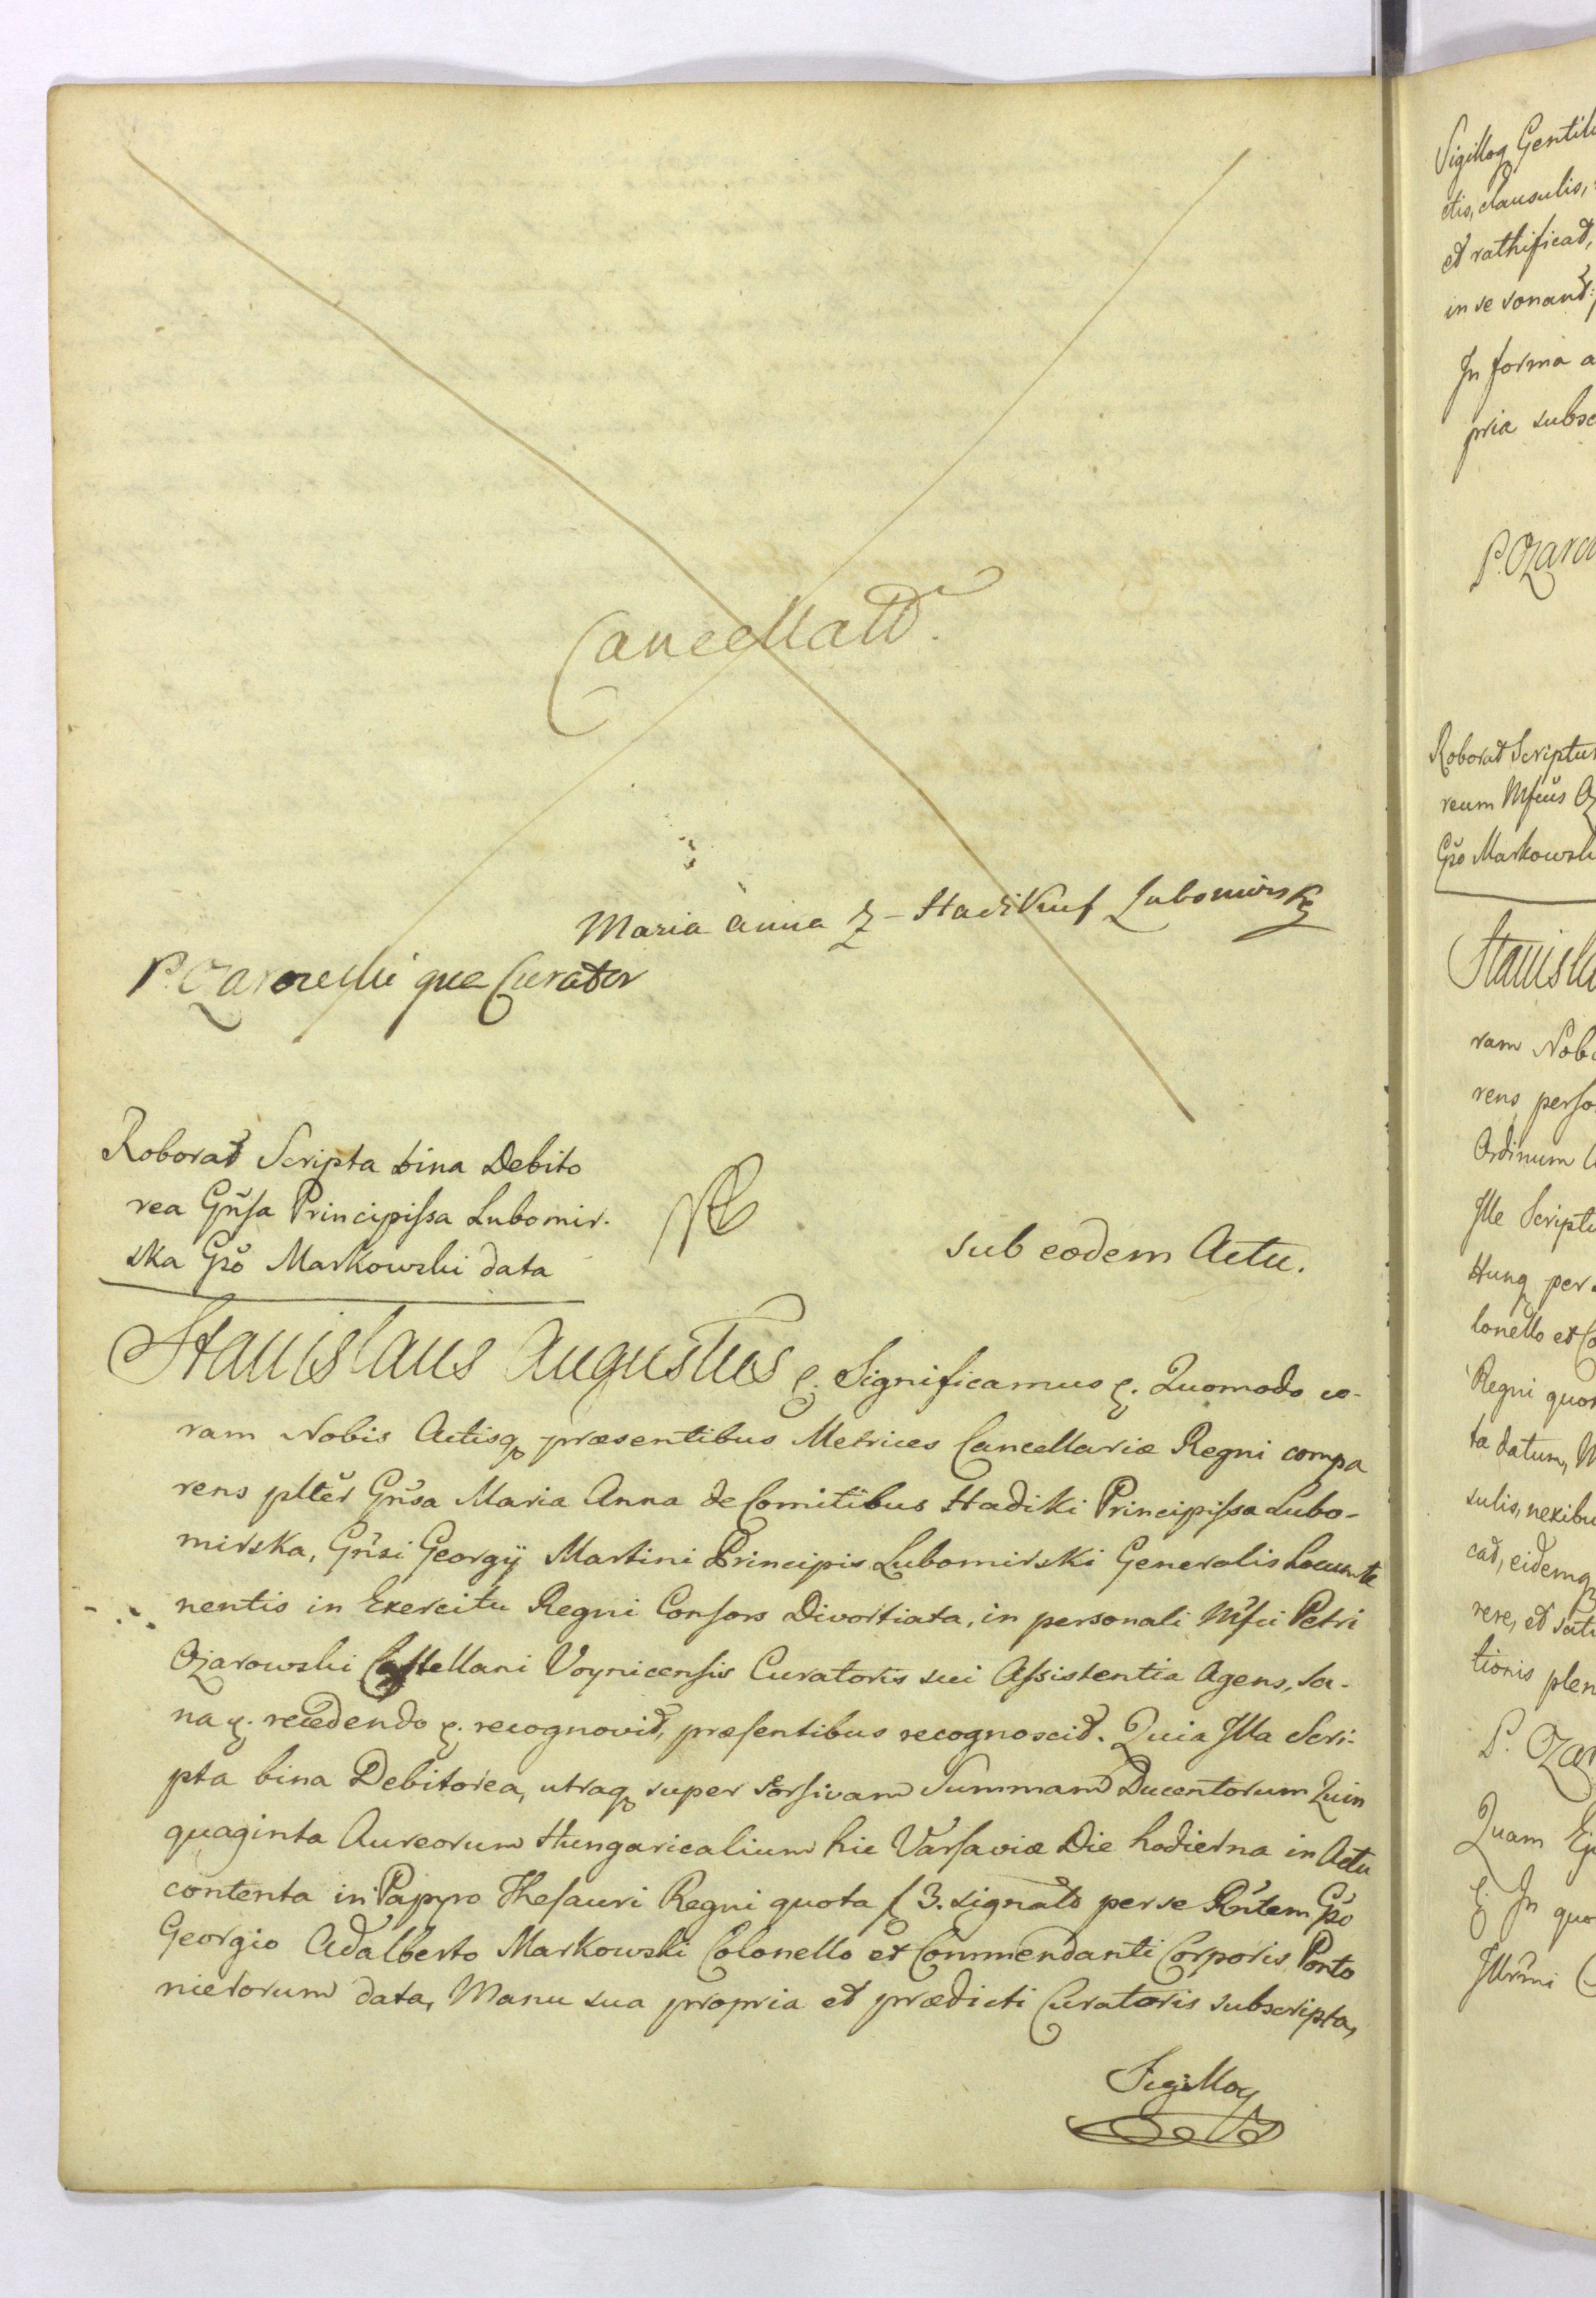 Cancellatt.
Maria Anna z Hadikuf Lubomirska
P. Ozarowski qua Curator
Roborat Scripta bina Debito
rea Gnsa Principissa Lubomir-
ska Gso Markowski data
sub eodem Actu.
Stanislaus Augustus &. Significamus &. Quomodo co-
ram Nobis Actisq præsentibus Metrices Cancellariæ Regni compa
rens plter Gnsa Maria Anna de Comitibus Hadiki Principissa Lubo-
mirska, Gnsi Georgij Martini Principis Lubomirski Generalis Locumte
nentis in Exercitu Regni Consors Divortiata, in personali Mfci Petri
Ozarowski Castellani Voynicensis Curatoris sui Assistentia Agens, Sa-
na &. recedendo &. recognovit, præsentibus recognoscit. Quia Illa Scri-
pta bina Debitorea, utraq super sorsivam Summam Ducentorum Quin
quaginta Aureorum Hungaricalium hic Varsaviæ Die hodierna in Actu
contenta in Papyro Thesauri Regni quota f 3. signato per se Rntem Gso
Georgio Adalberto Markowski Colonello et Commendanti Corporis Ponto
nierorum data, Manu sua propria et prædicti Curatoris subscripta,
Sigilloq
Sigilloq Gentil
ctis, clausulis,
et rathificat,
in se sonant:
In forma a
pria subsc
P. Ozaro
Roborat Scriptu
reum Mfcus Oz
Gso Markowsk
Stanisla
ram Nob
rens perso
Ordinum
Ille Script
Hung per
lonello et Co
Regni quo
ta datum, M
sulis, nexibu
cat, eidemq
rere, et sati
tionis plen
P. Ozar
Quam Ej
&. In quo
Illrmi C